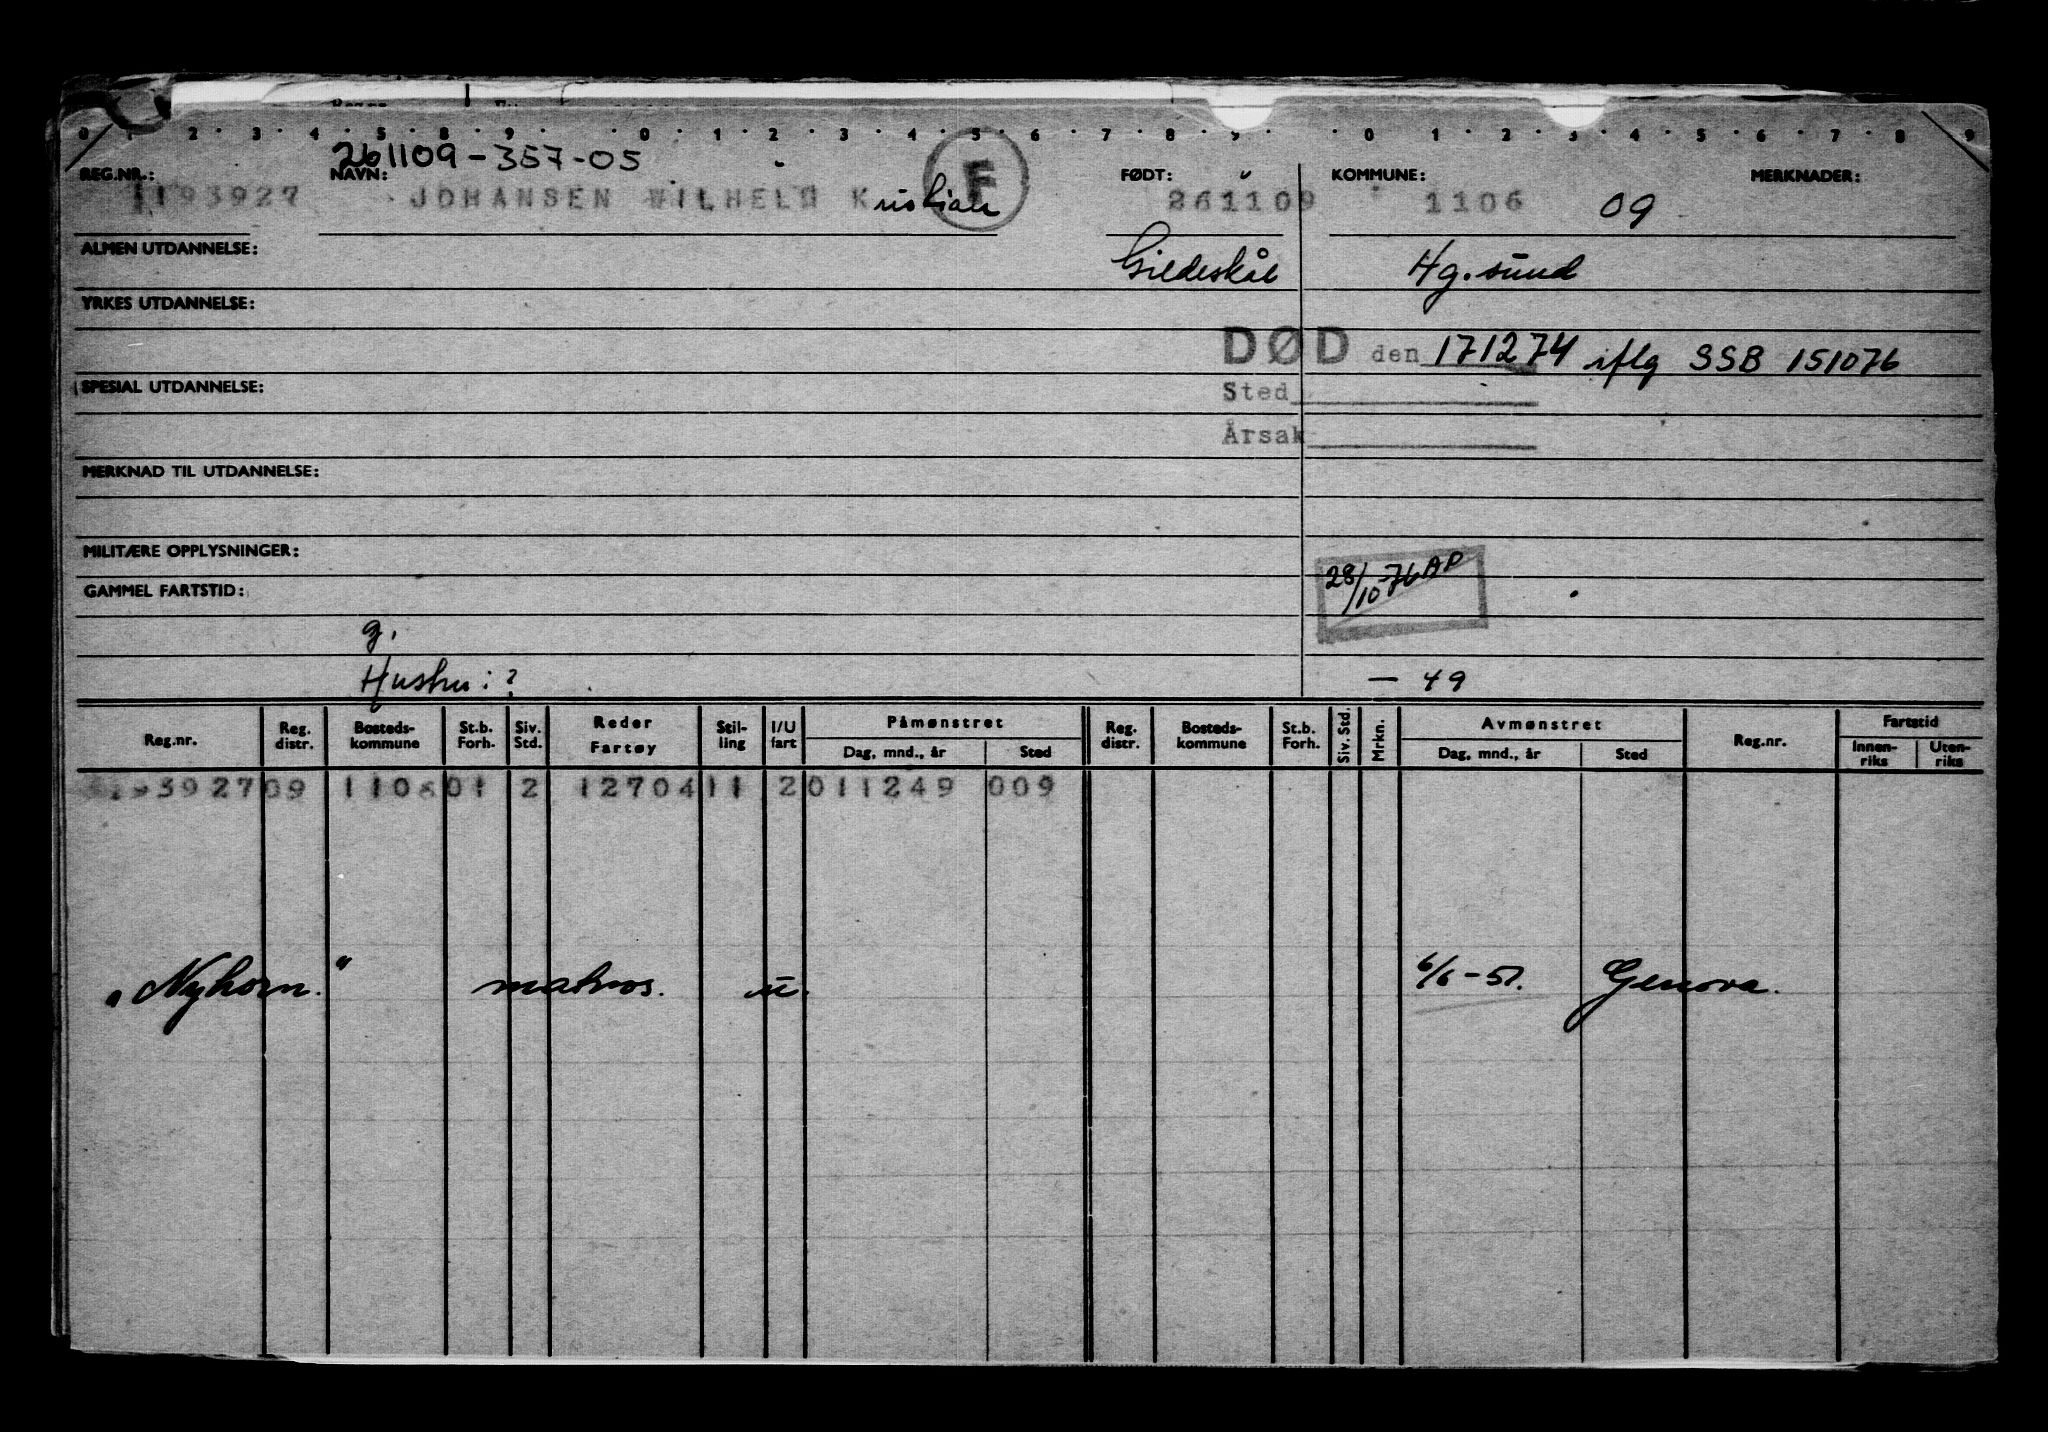 0 1 2 3 4 5 8 9 0 1 2 3 4 5 6 7 8 9 0 1 2 3 4 5 6 7 8 9
261109-357-05
REG.NR.: NAVN: FØDT: KOMMUNE: MERKNADER:
1193927 JOHANSEN WILHELM Kristian F 261109 1106 09
ALMEN UTDANNELSE: Gildeskål Hg.sund
YRKES UTDANNELSE:
DØD den 171274 iflg SSB 151076
SPESIAL UTDANNELSE: Sted
Årsak
MERKNAD TIL UTDANNELSE:
MILITÆRE OPPLYSNINGER:
28/10-76 AP
GAMMEL FARTSTID:
g.
Hustru: ? — 49
Reg.nr. Reg. distr. Bosteds-kommune St.b. Forh. Siv. Std. Reder Fartøy Stil-ling I/U fart Påmønstret Dag, mnd., år Sted Reg. distr. Bosteds-kommune St.b. Forh. Siv. Std. Mrkn. Avmønstret Dag, mnd., år Sted Reg.nr. Fartstid Innen-riks Uten-riks
193927 09 1106 01 2 12704 11 2 011249 009
„Nyhorn." matros. u. 6/6-51. Genova.